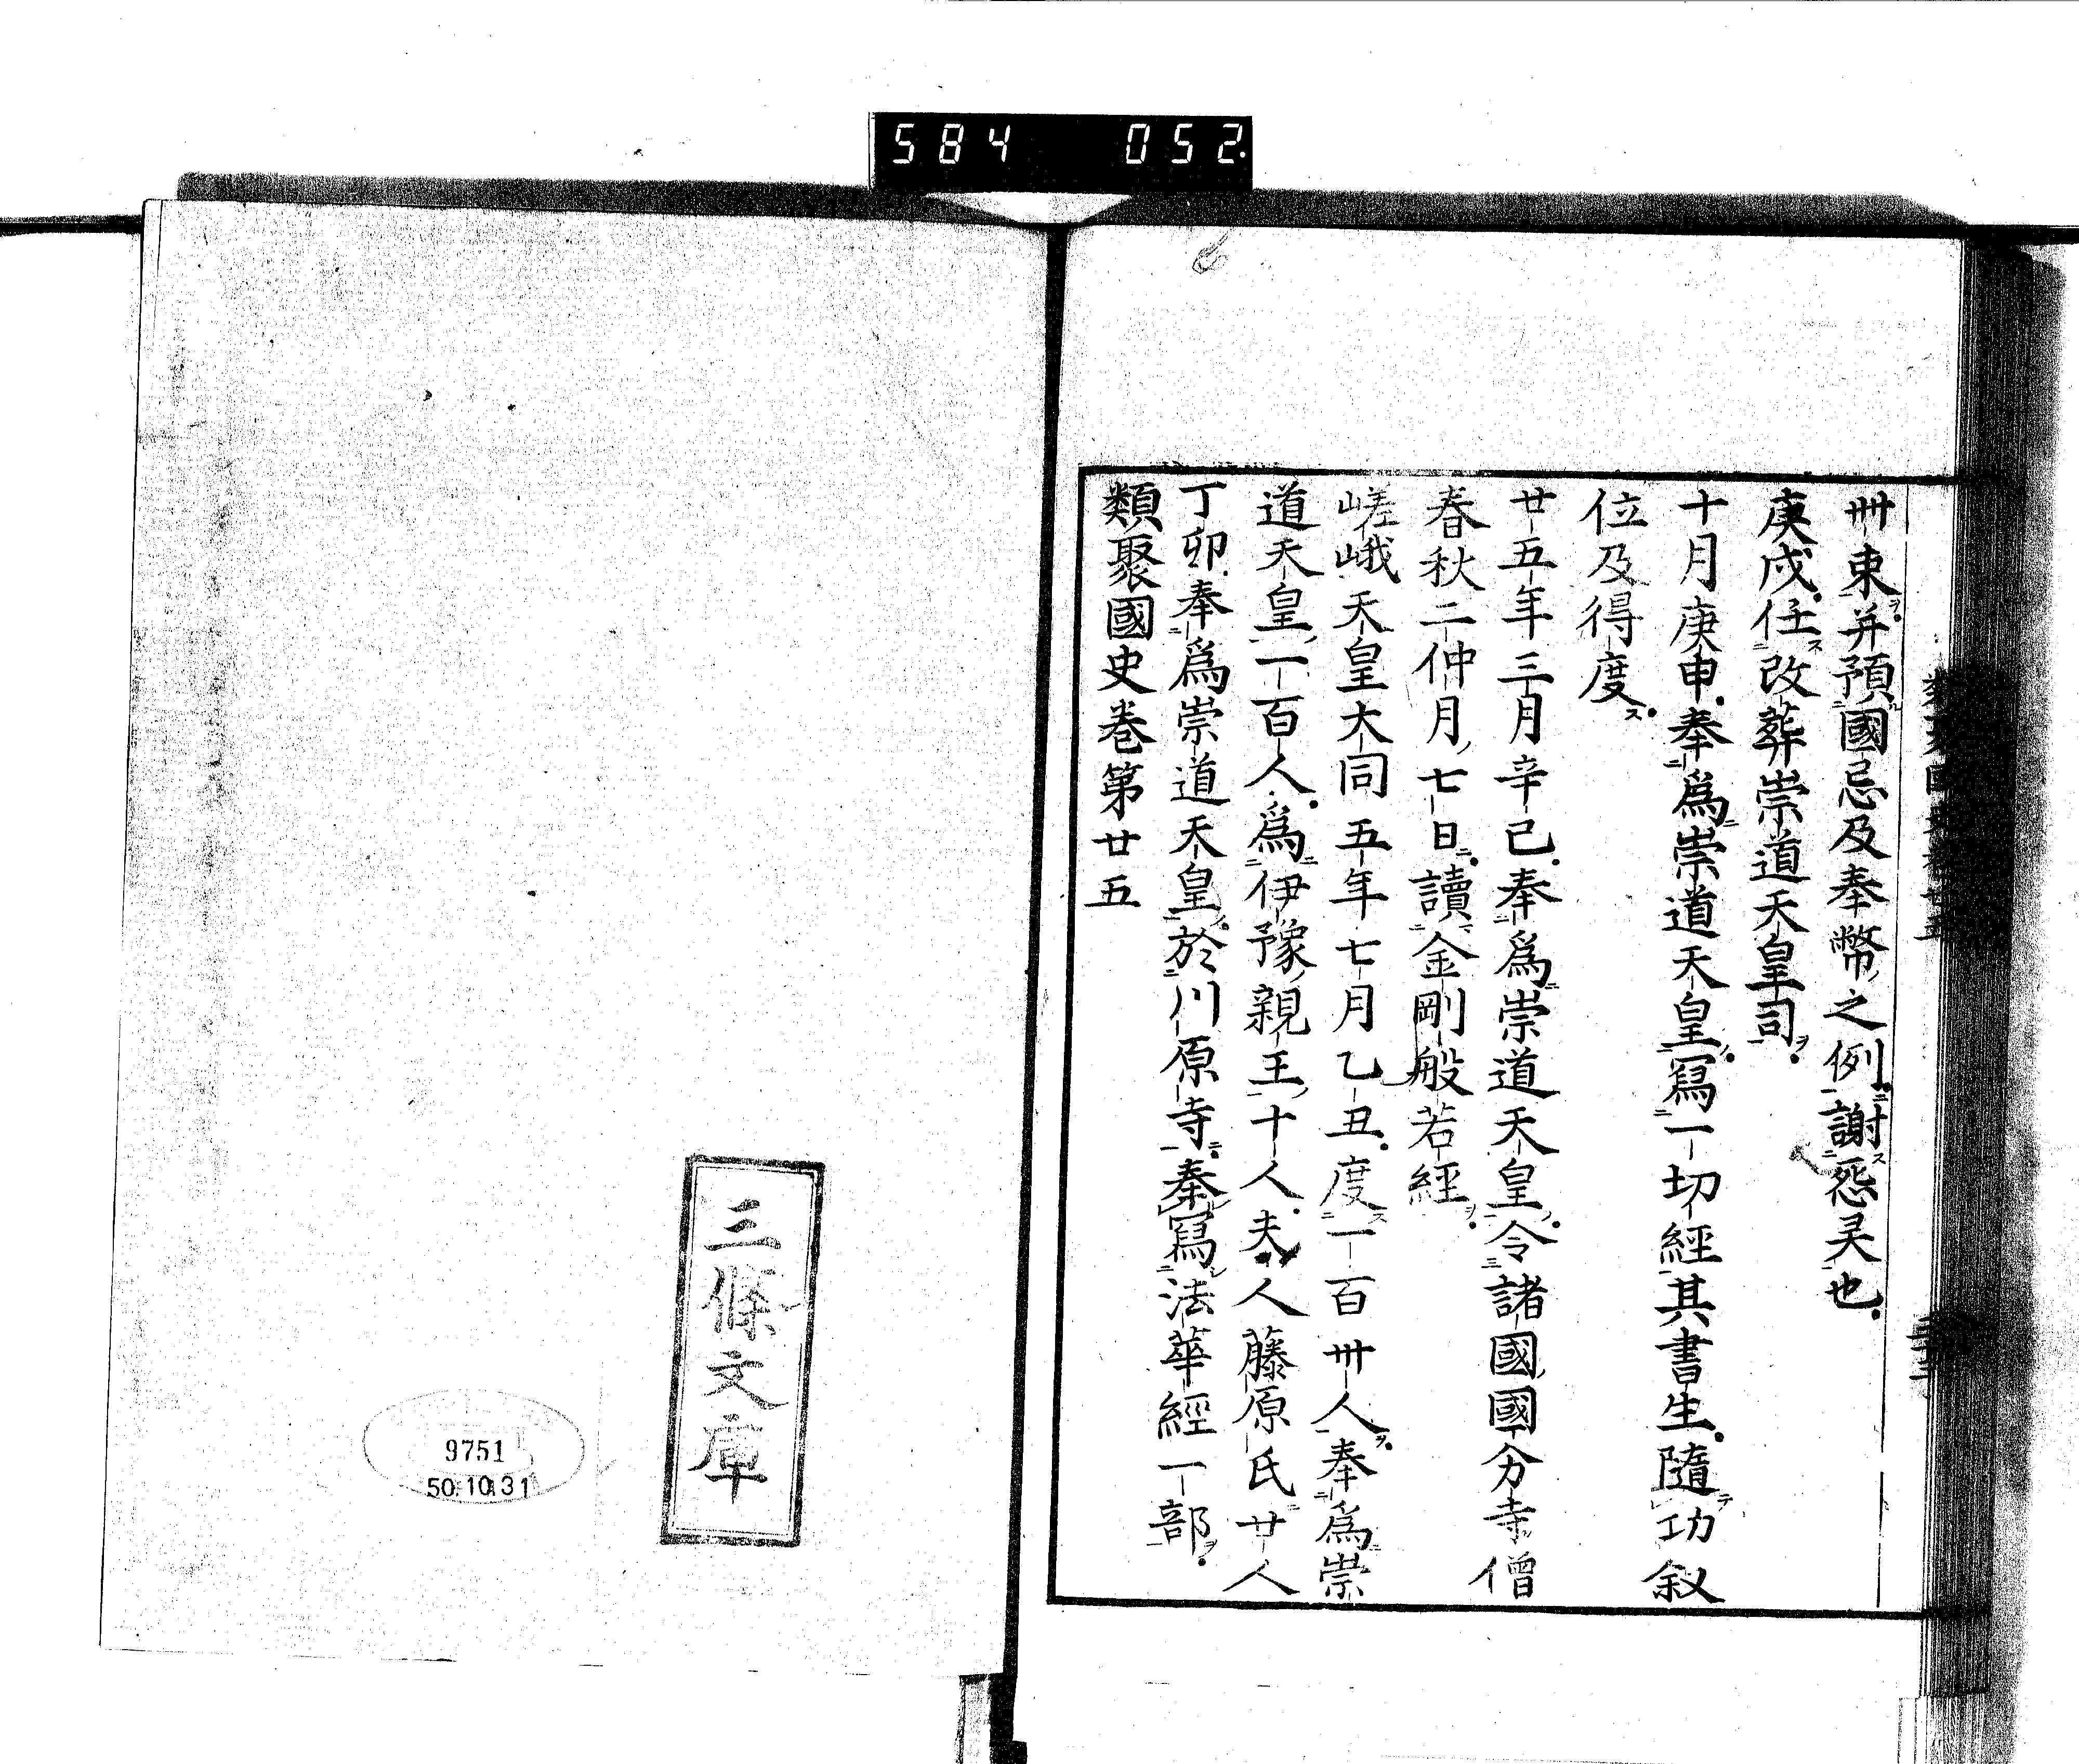 584 052
卌束并預國忌及奉幣之例謝怨㚑也
庚戌任改葬崇道天皇司
十月庚申奉爲崇道天皇寫一切經其書生隨功叙
位及得度
廿五年三月辛己奉爲崇道天皇令諸國國分寺僧
春秋二仲月七日讀金剛般若經
嵯峨天皇大同五年七月乙丑度一百卌人奉爲崇
道天皇一百人爲伊豫親王十人夫人藤原氏廿人
丁卯奉爲崇道天皇於川原寺奏寫法華經一部
類聚國史巻第廿五
三條文庫
9751
50.10.31